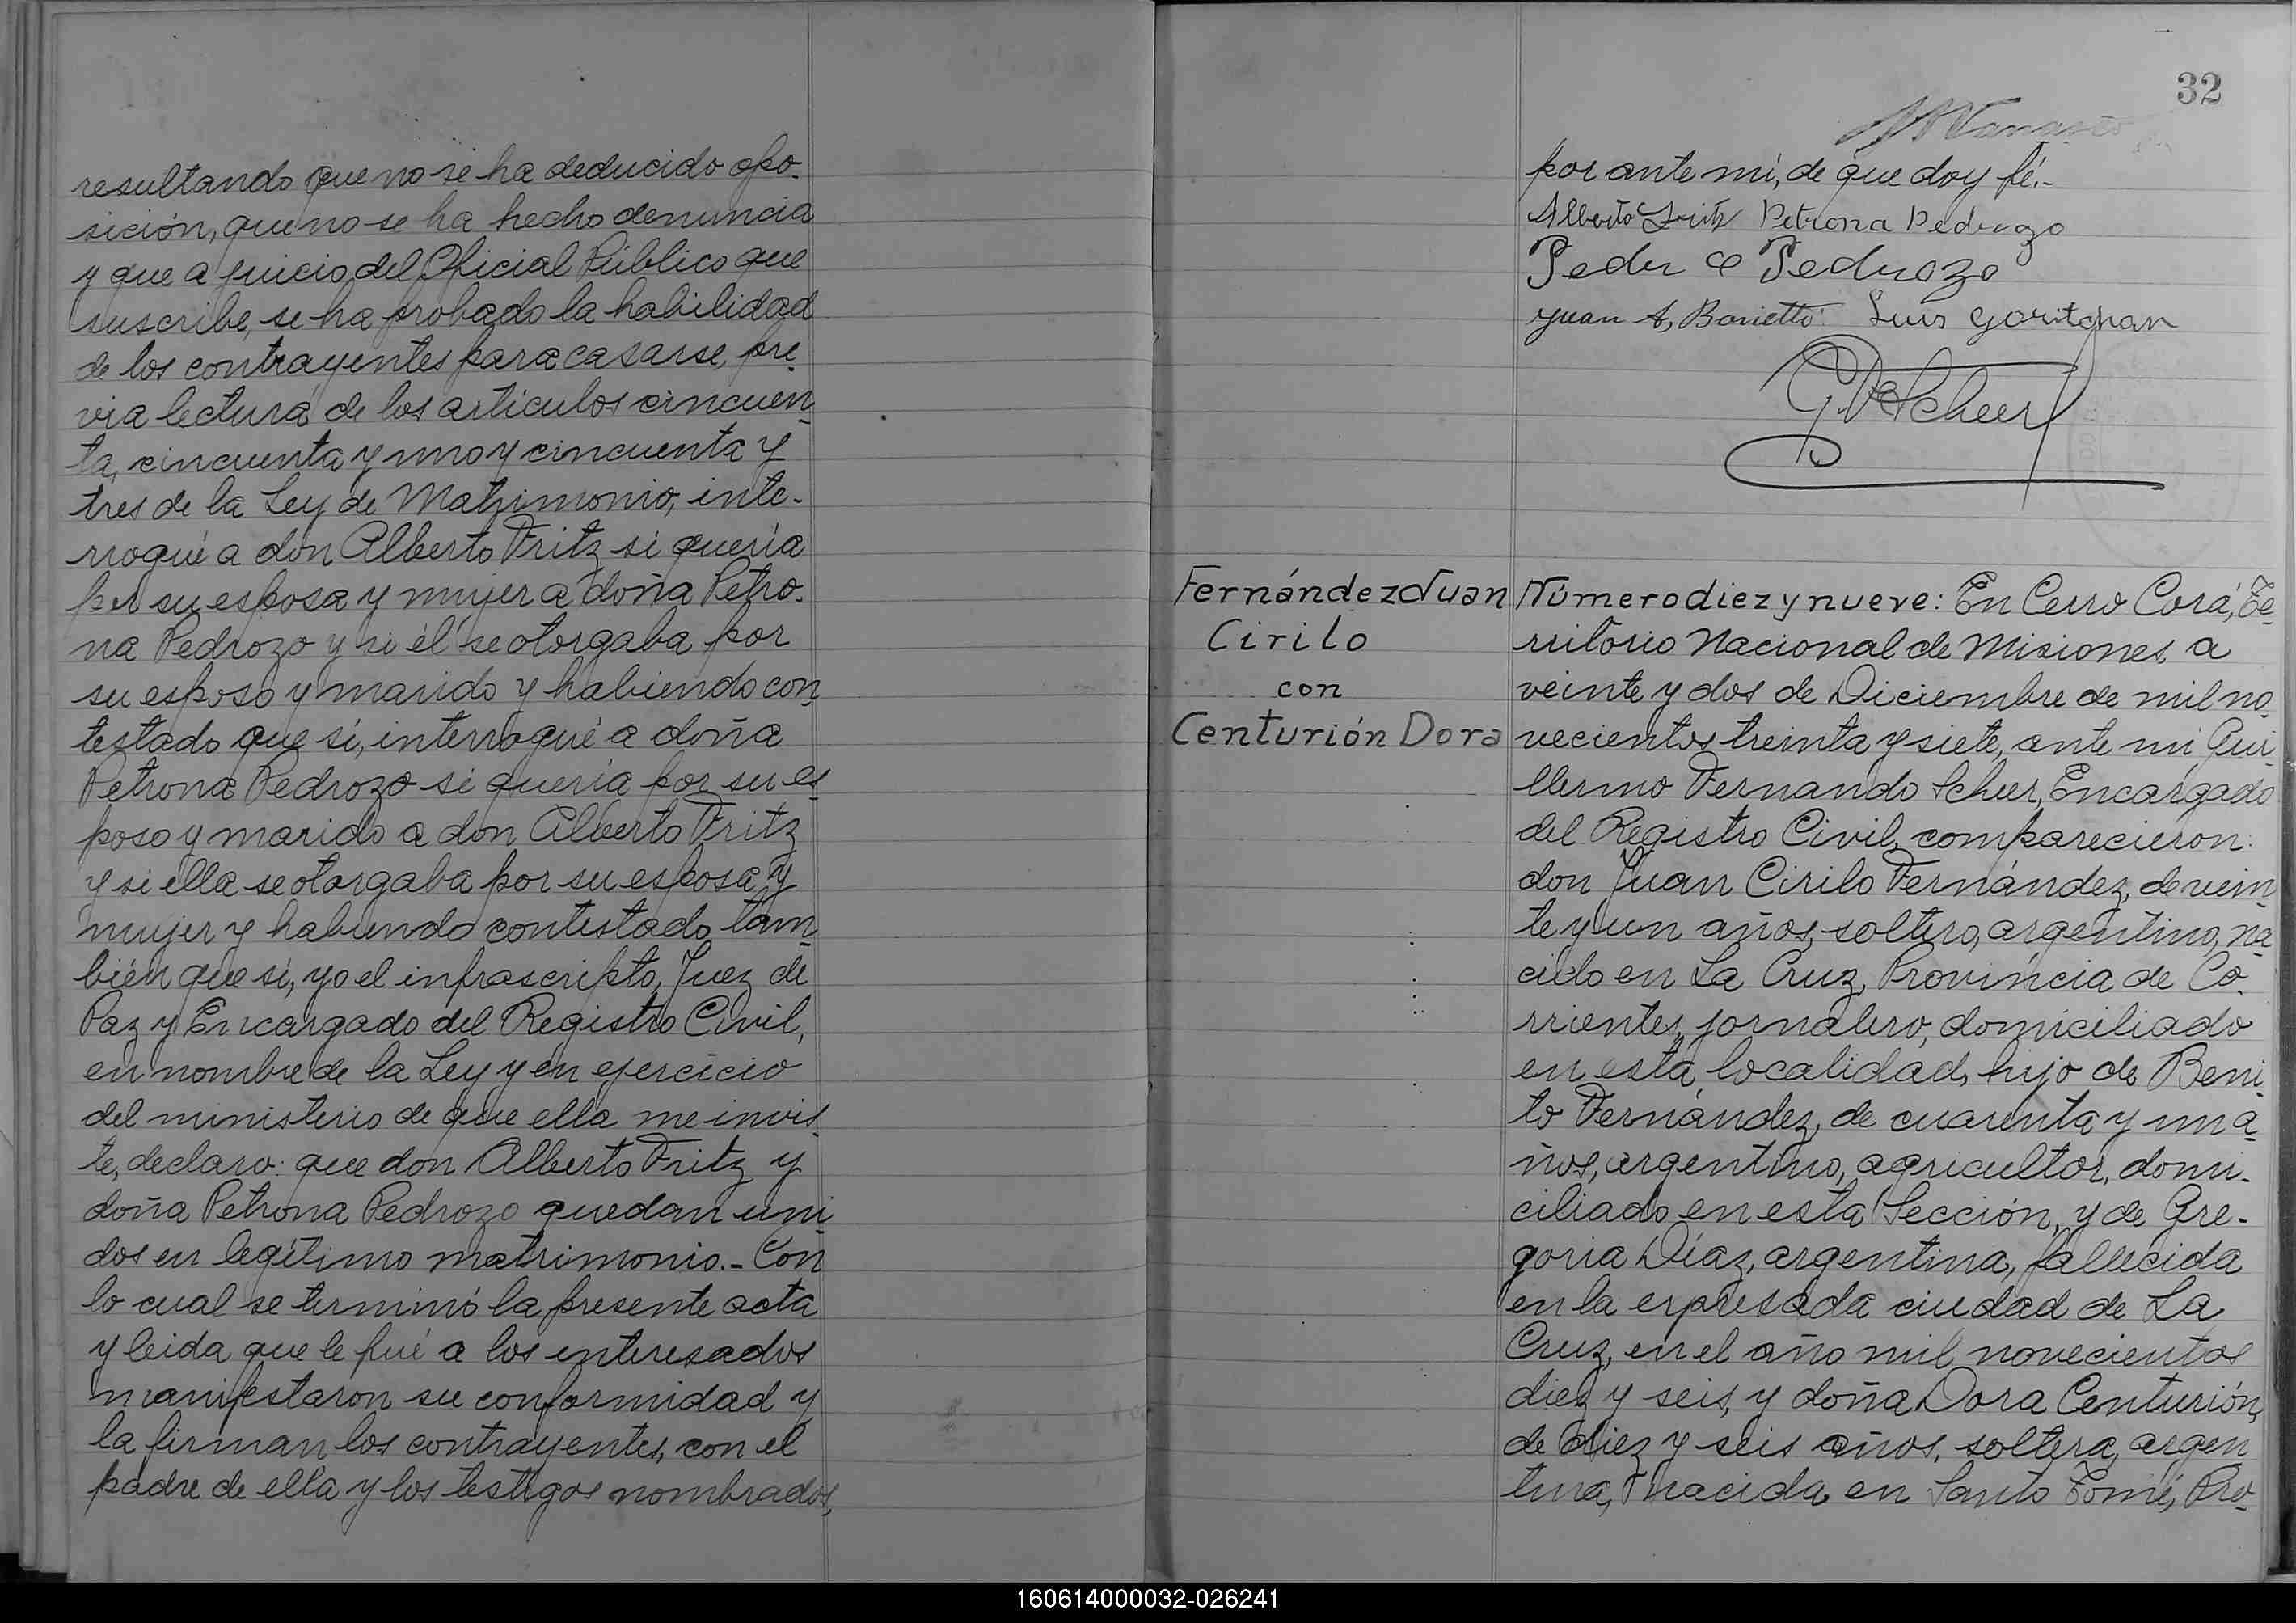 resultando que no se ha deducido opo-
sición, que no se ha hecho denuncia
y que a juicio del Oficial Público que
suscribe, se ha probado la habilidad
de los contrayentes para casarse, pre-
via lectura de los artículos cincuen-
ta, cincuenta y uno y cincuenta y
tres de la Ley de Matrimonio, inte-
rrogué a don Alberto Fritz si quería
por su esposa y mujer a doña Petro-
na Pedrozo y si él se otorgaba por
su esposo y marido y habiendo con-
testado que si, interrogué a doña
Petrona Pedrozo si quería por su es-
poso y marido a don Alberto Fritz
y si ella se otorgaba por su esposa y
mujer y habiendo contestado tam-
bién que si, yo el infrascripto, Juez de
Paz y Encargado del Registro Civil,
en nombre de la Ley y en ejercicio
del ministerio de que ella me invis-
te, declaro: que don Alberto Fritz y
doña Petrona Pedrozo quedan uni-
dos en legítimo matrimonio.- Con
lo cual se terminó la presente acta
y leida que le fué a los interesados
manifestaron su conformidad y
la firman los contrayentes, con el
padre de ella y los testigos nombrados,
32
por ante mi, de que doy fé.-
Alberto Fritz Petrona Pedrozo
Pedro Pedrozo
Juan A, Luis
G. F. Scheer
Fernández Juan
Cirilo
con
Centurión Dora
Número diez y nueve: En Cerro Corá, Te-
rritorio Nacional de Misiones a
veinte y dos de Diciembre de mil no-
vecientos treinta y siete, ante mi Gui-
llermo Fernando Scheer, Encargado
del Registro Civil, comparecieron:
don Juan Cirilo Fernández, de vein-
te y un años, soltero, argentino, na-
cido en La Cruz, Provincia de Co-
rrientes, jornalero, domiciliado
en esta localidad, hijo de Beni-
to Fernández, de cuarenta y un a-
ños, argentino, agricultor, domi-
ciliado en esta Sección, y de Gre-
goria Díaz, argentina, fallecida
en la expresada ciudad de La
Cruz, en el año mil novecientos
diez y seis, y doña Dora Centurión,
de diez y seis años, soltera, argen-
tina, nacida en Santo Tomé, Pro-
160614000032-026241